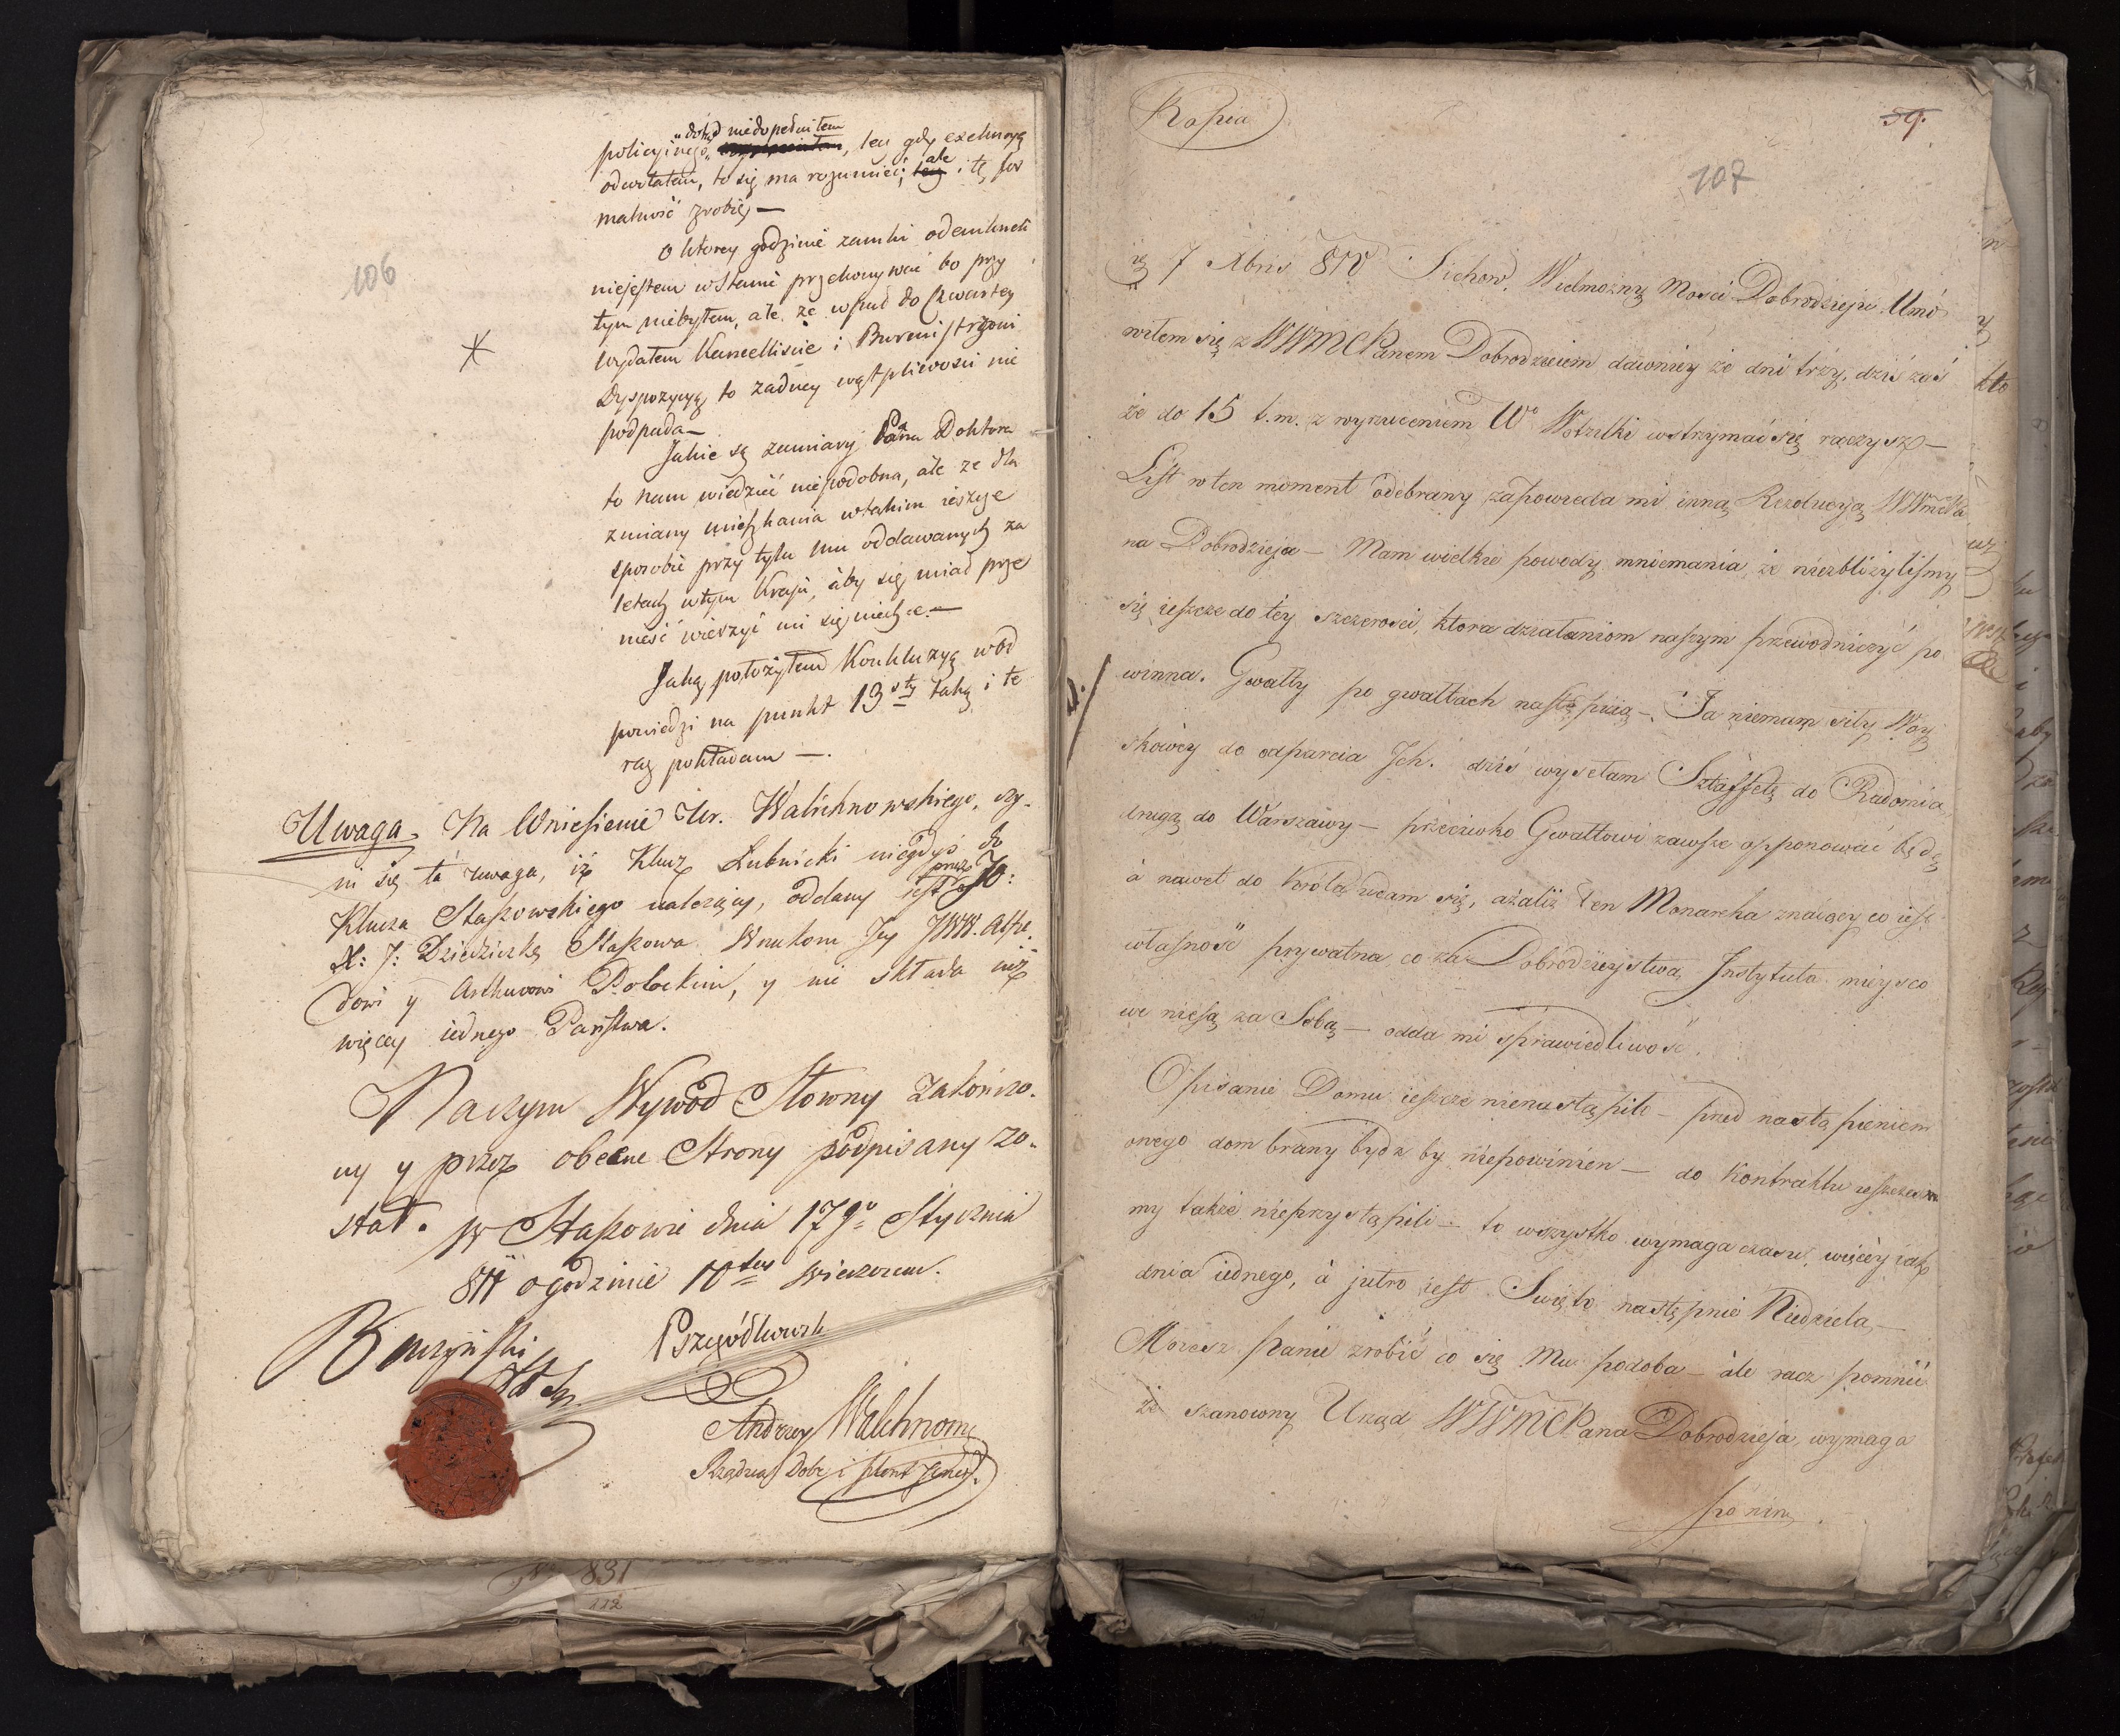 106
„dotąd niedopełniłem
policyjnego„ , lecz gdy exekucyą
odwołałem, to się ma rozumieć; ale
lecz i tę for
malność zrobię —
O ktorey godzinie zamki odemknęli
niejestem wstanie przekonywać bo przy
tym niebyłem, ale że wpuł do Czwartey
wydałem Kancelliście i Burmistrzowi
Dyspozycyą to żadney wątpliwości nie
podpada —
Jakie są zamiary Pana Doktora
to nam wiedzieć niepodobna, ale ze dla
zmiany mieszkania wtakim ieszcze
sposobie przy tylu mu oddawanych za
letach wtym Kraju, aby się miał prze
nieść wierzyć mi się niechce. —
Jaką położyłem Konkluzyą wod
powiedzi na punkt 13sty taką i te
raz pokładam —.
Uwaga. Na Wniesienie Ur. Walichnowskiego, czy-
ni się ta uwaga, iż Klucz Lubnicki niegdyś do
Klucza Staszowskiego należący, oddany jest przez JO:
X: J: Dziedziczkę Staszowa Wnukom Jey JWW. Alfre
dowi y Arthurowi Potockim, y nie składa już
więcey iednego Państwa.
Naczym Wywód Słowny zakończo.
ny y przez obecne Strony podpisany zo-
stał. w Staszowie dnia 17go Stycznia
811 o godzinie 10tey Wieczorem.
Przyódkowsk
Andrzey Walichnow
Rządzca Dobr i
831
112
Kopia
59.
107
7 Xbris 810 Sichow. Wielmożny Mości Dobrodzieju Umó
wiłem się z WWMCPanem Dobrodzieiem dawniey że dni trzy, dziś zaś
że do 15 t.m. z wyrzuceniem Wo Wotzilki wstrzymać się raczysz —
List w ten moment odebrany zapowieda mi inną Rezolucyą WWMCPa
na Dobrodzieja — Mam wielkie powody mniemania, że niezbliżyliśmy
się ieszcze do tey szczerości, ktora działaniom naszym przewodniczyć po
winna. Gwałty po gwałtach nastąpią —. Ja niemam siły Woy
skowey do odparcia Jch. dziś wysełam Sztaffetę do Radomia,
drugą do Warszawy — przeciwko Gwałtowi zawsze opponować będę
à nawet do Króla udam się, ażaliż ten Monarcha znaiący co iest
własność prywatna co za Dobrodzieystwa Jnstytuta mieysco
we niesą za Sobą — odda mi sprawiedliwość.
Opisanie Domu ieszcze nienastąpiło — przed nastąpieniem
onego dom brany bydz by niepowinien — do kontraktu ieszcześ
my także nieprzystąpili — to wszystko wymaga czasu, więcey iak
dnia iednego, à jutro iest Swięto następnie Niedziela, —
Możesz Panie zrobić co się Mu podoba — ale racz pomnieć
że szanowny Urząd WWMCPana Dobrodzieja, wymaga